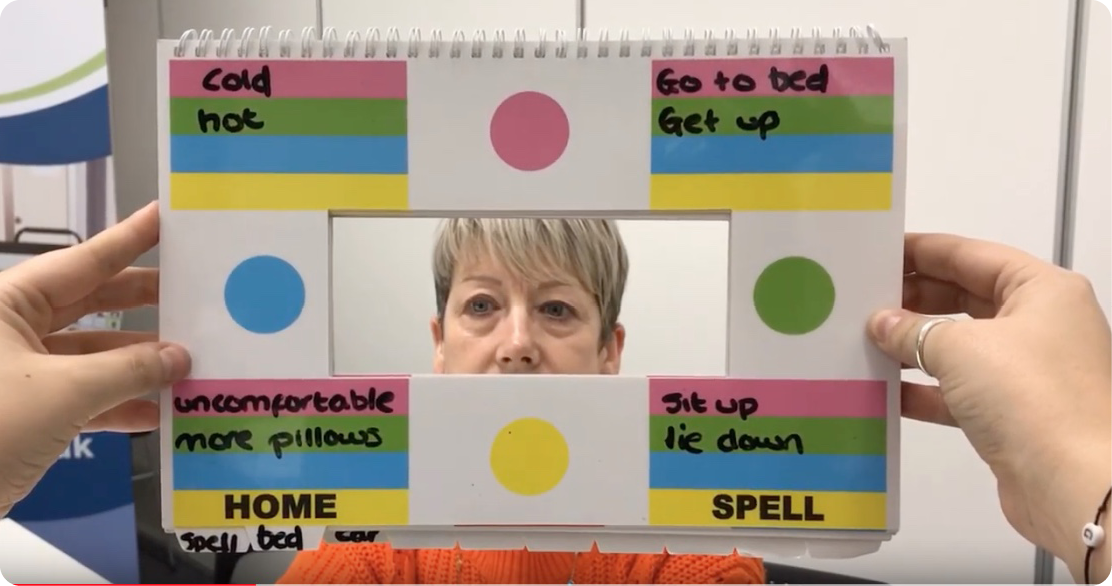 Cold
hot
Go to bed
Get up
uncomfortable
more pillows
HOME
Sit up
lie down
SPELL
spell bed car